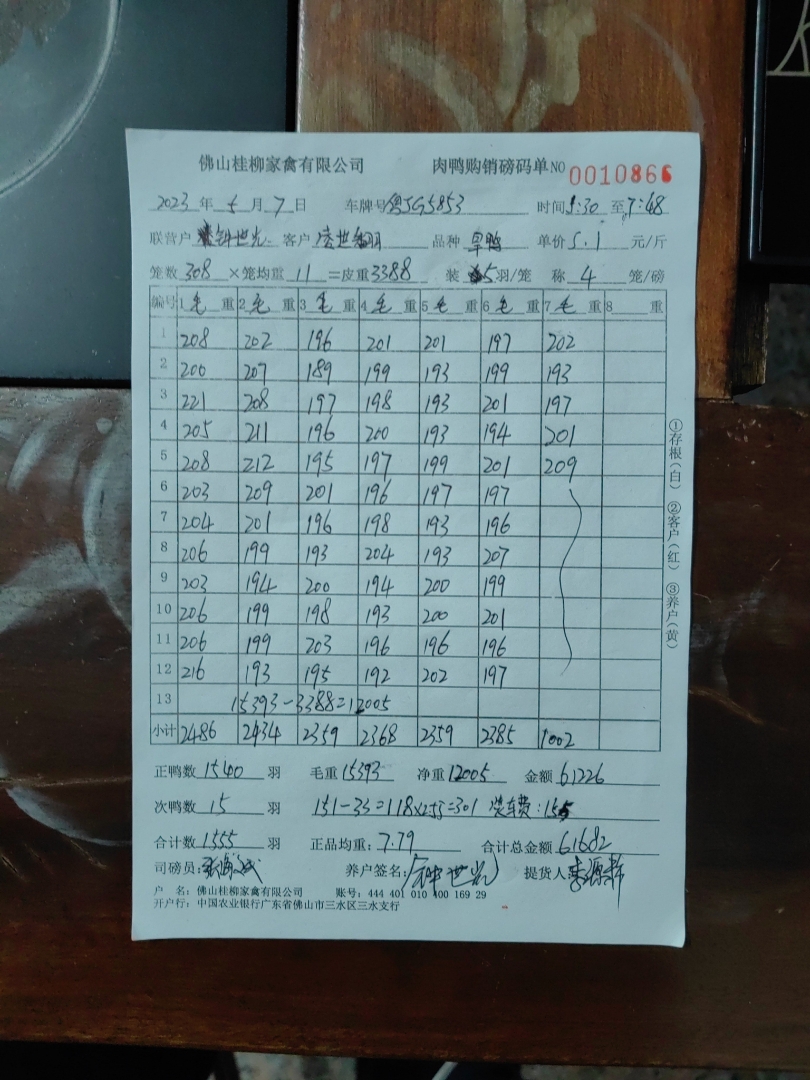 佛山桂柳家禽有限公司 肉鸭购销磅码单 NO 0010866
2023 年 5 月 7 日 车牌号 粤JG5853 时间 5:30 至 7:48
联营户 钟世光 客户 品种 旱鸭 单价 5.1 元/斤
笼数 308 ×笼均重 11 =皮重 3388 装 5 羽/笼 称 4 笼/磅
编号 1 毛 重 2 毛 重 3 毛 重 4 毛 重 5 毛 重 6 毛 重 7 毛 重 8 重
1 208 202 196 201 201 197 202
2 200 207 189 199 193 199 193
3 221 208 197 198 193 201 197
4 205 211 196 200 193 194 201
5 208 212 195 197 199 201 209
6 203 209 201 196 197 197
7 204 201 196 198 193 196
8 206 199 193 204 193 207
9 203 194 200 194 200 199
10 206 199 198 193 200 201
11 206 199 203 196 196 196
12 216 193 195 192 202 197
13 15393-3388=12005
小计 2486 2434 2359 2368 2359 2385 1002
正鸭数 1540 羽 毛重 15393 净重 12005 金额 61226
次鸭数 15 羽 151-33=118×2.55=301 装车费:155
合计数 1555 羽 正品均重: 7.79 合计总金额 61682
司磅员: 养户签名: 钟世光 提货人
户 名: 佛山桂柳家禽有限公司 账号: 444 401 010 400 169 29
开户行: 中国农业银行广东省佛山市三水区三水支行
①存根(白) ②客户(红) ③养户(黄)